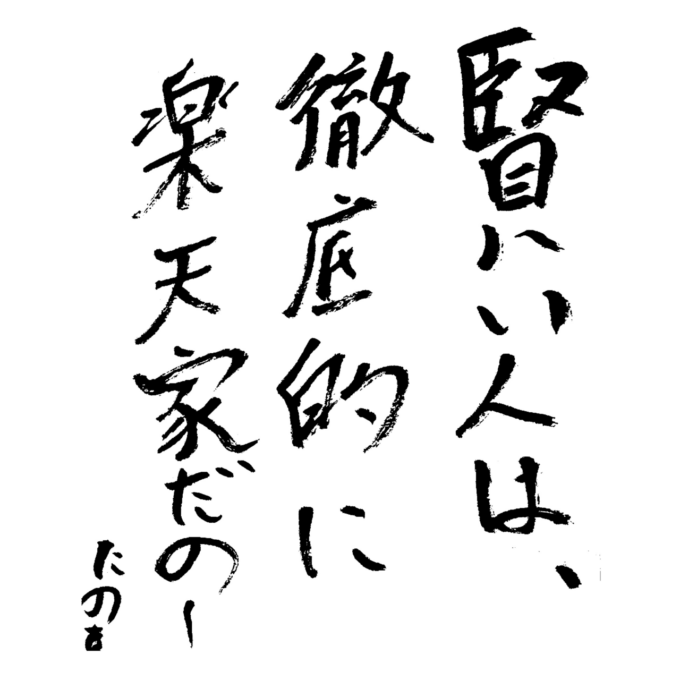 賢い人は、
徹底的に
楽天家だのー
たの吉